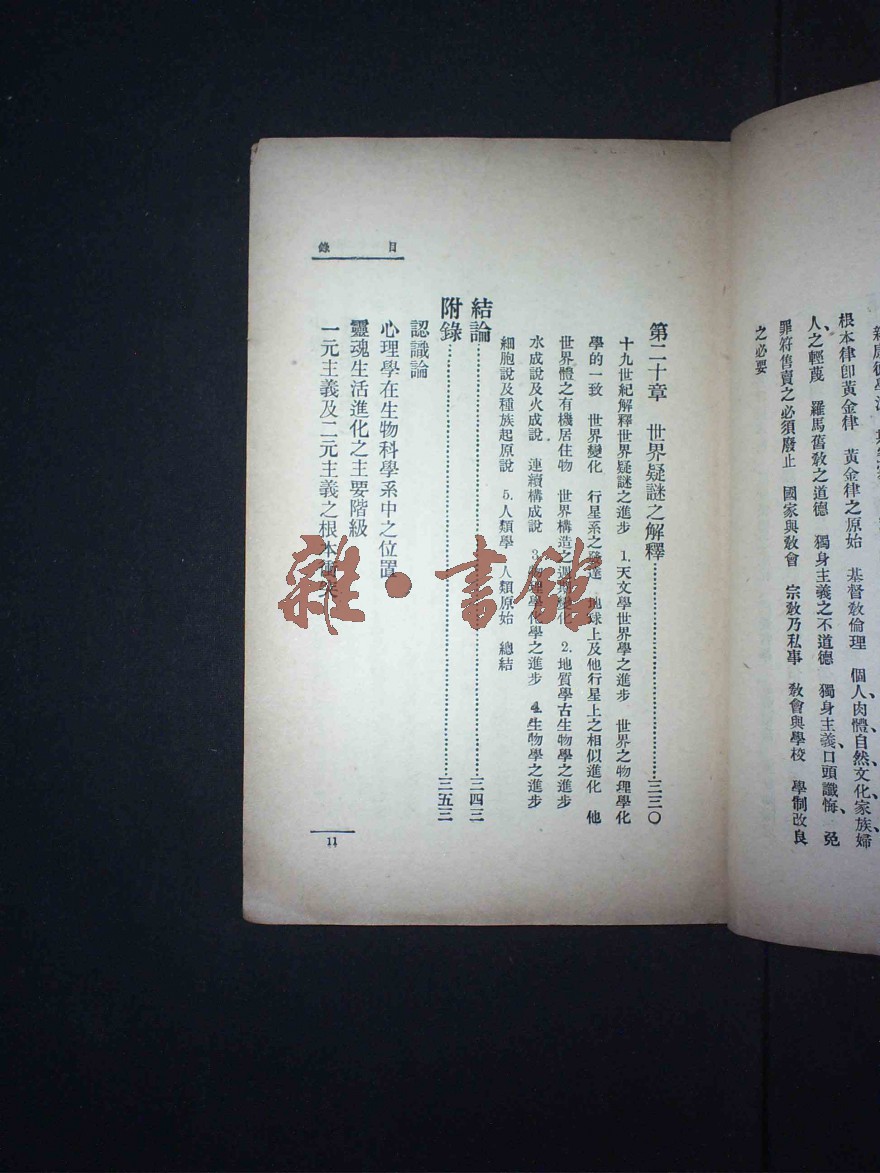 新康德學派
根本律卽黃金律　黃金律之原始　基督敎倫理　個人、肉體、自然、文化、家族、婦
人、之輕蔑　羅馬舊敎之道德　獨身主義之不道德　獨身主義、口頭讖悔、免
罪符售賣之必須廢止　國家與敎會　宗敎乃私事　敎會與學校　學制改良
之必要
目錄
第二十章　世界疑謎之解釋……三三〇
十九世紀解釋世界疑謎之進步　1.天文學世界學之進步　世界之物理學化
學的一致　世界變化　行星系之發達　地球上及他行星上之相似進化　他
世界體之有機居住物　世界構造之週期變化　2.地質學古生物學之進步
水成說及火成說　連續構成說　3.物理學化學之進步　4.生物學之進步
細胞說及種族起原說　5.人類學　人類原始　總結
結論……三四三
附錄……三五三
認識論
心理學在生物科學系中之位置
靈魂生活進化之主要階級
一元主義及二元主義之根本衝突
11
雜·書館